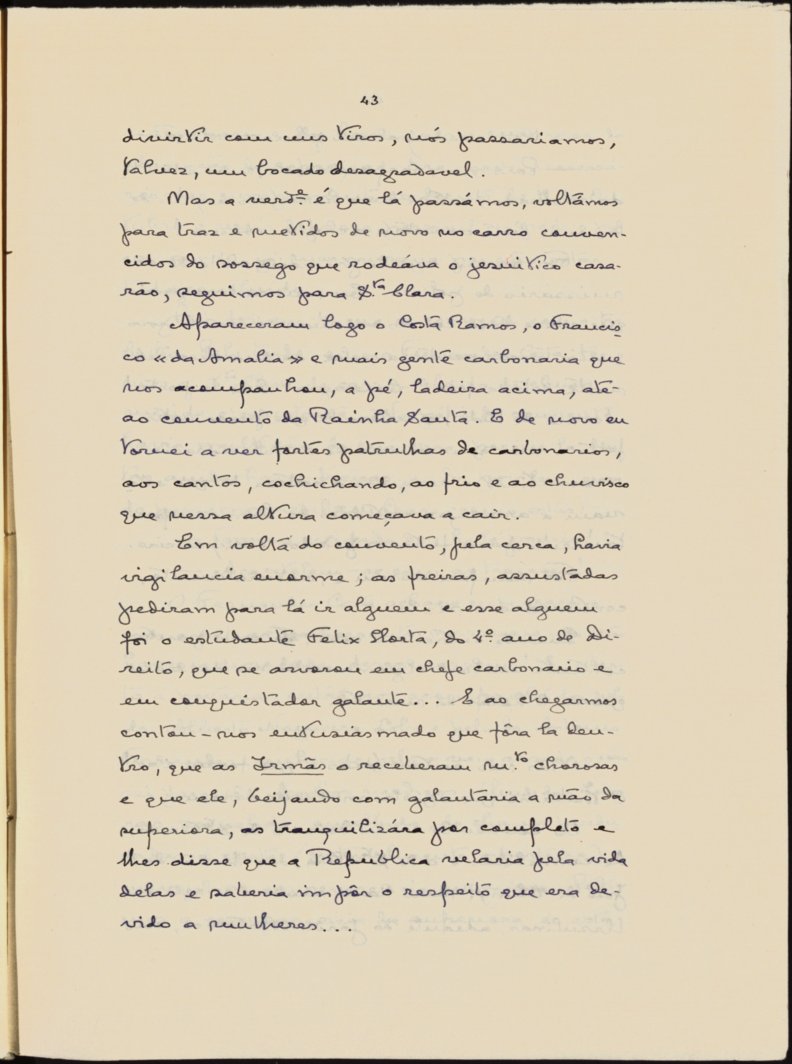 43
divirtir com uns tiros, nós passariamos,
talvez, um bocado desagradavel.
Mas a verd.e é que lá passámos, voltámos
para traz e metidos de novo no carro conven-
cidos do sossego que rodeáva o jesuitico casa-
rão, seguimos para S.ta Clara.
Apareceram logo o Costa Ramos, o Francis-
co «da Amalia» e mais gente carbonaria que
nos acompanhou, a pé, ladeira acima, até
ao convento da Rainha Santa. E de novo eu
tornei a ver fortes patrulhas de carbonarios,
aos cantos, cochichando, ao frio e ao chuvisco
que nessa altura começava a cair.
Em volta do convento, pela cerca, havia
vigilancia enorme; as freiras, assustadas
pediram para lá ir alguem e esse alguem
foi o estudante Felix Horta, do 4.º ano de Di-
reito, que se arvorou em chefe carbonario e
em conquistador galante... E ao chegarmos
contou-nos entusiasmado que fôra la den-
tro, que as Irmãs o receberam m.to chorosas
e que ele, beijando com galantaria a mão da
superiora, as tranquilizára por completo e
lhes disse que a Republica velaria pela vida
delas e saberia impôr o respeito que era de-
vido a mulheres...